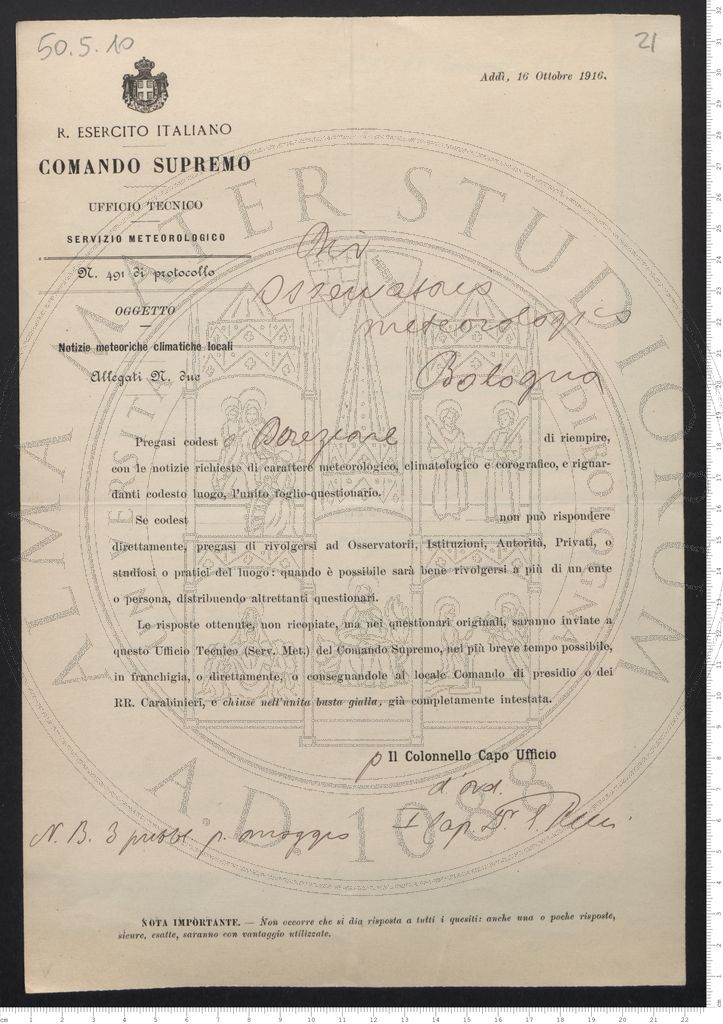 50.5.10
21
Addì, 16 Ottobre 1916.
R. ESERCITO ITALIANO
COMANDO SUPREMO
UFFICIO TECNICO
SERVIZIO METEOROLOGICO
N. 491 di protocollo
OGGETTO
Notizie meteoriche climatiche locali
Allegati N. due
Osservatorio
meteorologico
Bologna
Pregasi codest a Direzione di riempire,
con le notizie richieste di carattere meteorologico, climatologico e corografico, e riguar-
danti codesto luogo, l'unito foglio-questionario.
Se codest non può rispondere
direttamente, pregasi di rivolgersi ad Osservatorii, Istituzioni, Autorità, Privati, o
studiosi o pratici del luogo: quando è possibile sarà bene rivolgersi a più di un ente
o persona, distribuendo altrettanti questionari.
Le risposte ottenute, non ricopiate, ma nei questionari originali, saranno inviate a
questo Ufficio Tecnico (Serv. Met.) del Comando Supremo, nel più breve tempo possibile,
in franchigia, o direttamente, o consegnandole al locale Comando di presidio o dei
RR. Carabinieri, e chiuse nell'unita busta gialla, già completamente intestata.
p Il Colonnello Capo Ufficio
d'ord.
N. B. 3 pubbl. p. omaggio
Cap. Dr.
NOTA IMPORTANTE. — Non occorre che si dia risposta a tutti i quesiti: anche una o poche risposte,
sicure, esatte, saranno con vantaggio utilizzate.
ALMA MATER STUDIORUM
A.D. 1088